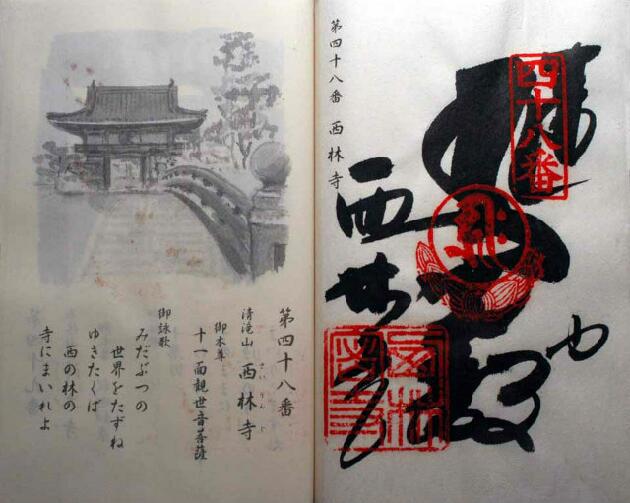 四十八番
西林寺
第四十八番 西林寺
第四十八番
清滝山 西林寺
さいりんじ
御本尊
十一面観世音菩薩
御詠歌
みだぶつの
世界をたずね
ゆきたくば
西の林の
寺にまいれよ